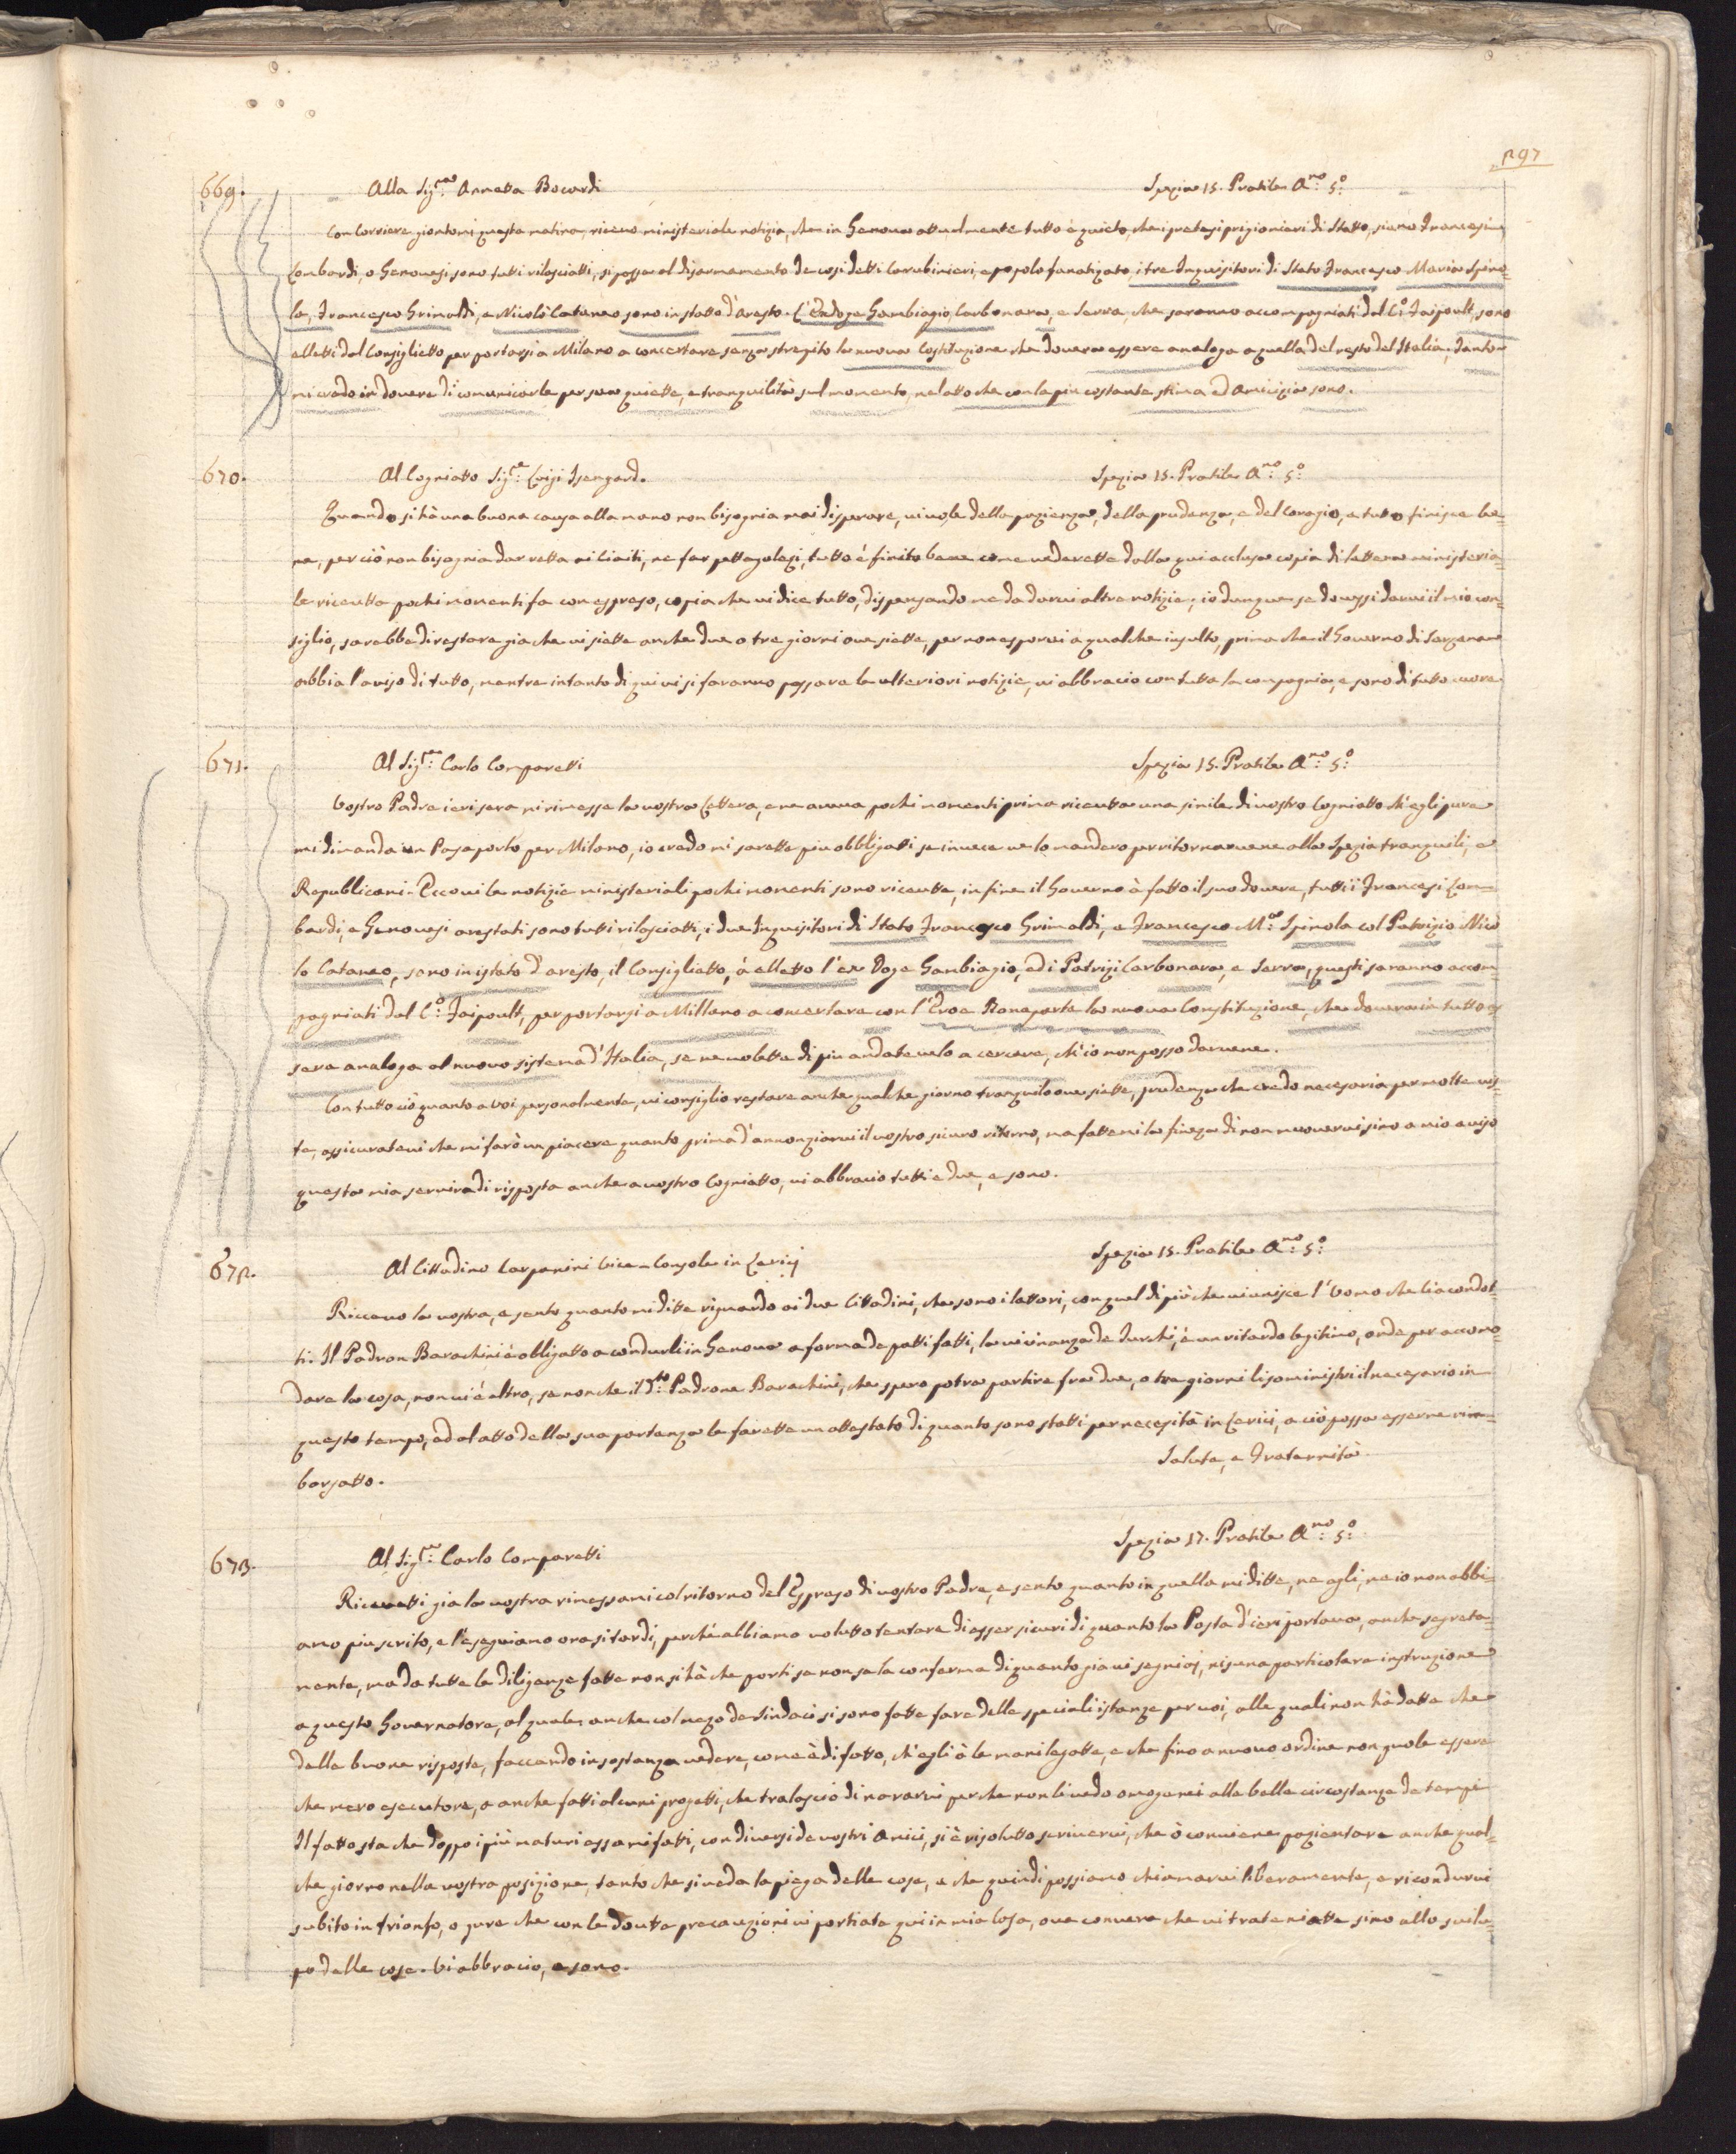 297
669. Alla Sig.ra Annetta Bocardi Spezia 15. Pratile Anno 5°
Con Corriere giontomi questa matina, ricevo ministeriale notizia, che in Genova attualmente tutto è quieto, che i pretesi prigionieri di Statto, siano Francesi,
Lombardi, o Genovesi sono tutti rilasciatti, si passa al disarmamento de cosi detti Carubinieri, e popolo fanatizato, i tre Inquisitori di Stato Francesco Maria Spino-
la, Francesco Grimaldi, e Nicolò Cataneo sono in statto d'aresto. L'Exdoge Gambiagio, Carbonara, e Serra, che saranno accompagniati dal C.° Faipoult, sono
elletti dal Consiglietto per portarsi a Milano a concertare senza strepito la nuova Costituzione che dovera essere analoga a quella del resto del Italia; Tanto
mi credo in dovere di comunicarle per sua quiette, e tranquilità sul momento, nel atto che con la piu costante stima ed amicizia sono.
670. Al Cogniatto Sig.re Luigi Isengard. Spezia 15. Pratile Anno 5°
Quando si hà una buona causa alla mano non bisognia mai disperare, vi vole della pazienza, della prudenza, e del coragio, e tutto finisce be-
ne, per ciò non bisognia dar retta ai Ciaiti, ne far pettagolezi, tutto é finito bene come vederette dalla qui acclusa copia di lettera ministeria-
le riceutta pochi momenti fa con espreso, copia che vi dice tutto, dispensando me da darvi altre notizie; io dunque se dovessi darvi il mio con-
siglio, sarebbe di restare gia che vi siette anche due o tre giorni ove siette, per non esporvi a qualche insulto, prima che il Governo di Sarzana
abbia l'aviso di tutto, mentre intanto di qui vi si faranno passare le ulteriori notizie, vi abbracio con tutta la compagnia, e sono di tutto cuore
671. Al Sig.re Carlo Comparetti Spezia 15. Pratile Anno 5°
Vostro Padre ieri sera mi rimesse la vostra Lettera, e ne aveva pochi momenti prima riceutta una simile di vostro Cogniatto ch'egli pure
mi dimanda un Pasaporto per Milano, io credo mi sarette piu obbligatti se invece ve lo mandero per ritornarvene alla Spezia tranquili, e
Republicani. Eccovi le notizie ministeriali pochi momenti sono riceutte, in fine il Governo à fatto il suo dovere, tutti i Francesi Lom-
bardi, e Genovesi arestati sono tutti rilasciatti, i due Inquisitori di Stato Francesco Grimaldi, e Francesco M.a Spinola col Patrizio Nico
lo Cataneo, sono in istato d'aresto, il Consiglietto, à elletto l'ex Doge Gambiagio, ed i Patrizi Carbonara, e Serra, questi saranno accom
pagniati dal C.° Faipoult, per portarsi a Millano a concertare con l'Eroe Bonaparte la nuova Constituzione, che dovera in tutto es
sere analoga al nuovo sistema d'Italia, se ne volette di piu andatevelo a cercare, ch'io non posso darvene.
Con tutto ciò quanto a voi personalmente, vi consiglio restare anche qualche giorno tranquilo ove siette, prudenza che credo necesaria per molte vis-
te, assicuratevi che mi farò un piacere quanto prima d'annonziarvi il vostro sicuro ritorno, ma fattemi la fineza di non muovervi sino a mio aviso
questa mia servira di risposta anche a vostro Cogniatto, vi abbracio tutti e due, e sono.
672. Al Cittadino Carpanini Vice-Console in Lerici Spezia 15. Pratile Anno 5°
Riccevo la vostra, e sento quanto mi ditte riguardo ai due Cittadini, che sono i lattori, con quel di piò che vi unisce l'Uomo che li à condot-
ti. Il Padron Barachini è obligatto a condurli in Genova a forma de patti fatti, la vicinanza de Turchi, é un ritardo legitimo, onde per accomo-
dare la cosa, non vi é altro, se non che il d.to Padrone Barachini, che spero potra partire fra due, o tre giorni li sominist­ri il necesario in
questo tempo, ed al atto della sua partenza le farette un attestato di quanto sono statti per necesità in Lerici, a ciò possa esserne rim-
borsatto. Salute, e Fraternità
673. Al Sig.re Carlo Comparetti Spezia 17. Pratile Anno 5°
Ricevetti gia la vostra rimessami col ritorno del Espreso di vostro Padre, e sento quanto in quella mi ditte, ne egli, ne io non abbi-
amo piu scrito, e l'eseguiamo ora si tardi, perché abbiamo volutto tentare di esser sicuri di quanto la Posta d'ieri portava, anche segreta-
mente, ma da tutte le diligenze fatte non si hà che porti se non se la conferma di quanto gia vi segniai, nisuna particolare instruzione
a questo Governatore, al quale anche col mezo de Sindaci si sono fatte fare delle speciali istanze per voi, alle quali non hà datte che
delle buone risposte, faccendo in sostanza vedere, come è di fatto, ch'egli à le mani legatte, e che fino a nuovo ordine non puole essere
che mero esecutore, e anche fatti alcuni progetti, che tralascio di nararvi perche non li vedo omogenei alle belle circostanze de tempi
Il fatto sta che doppo i piu maturi essami fatti, con diversi de vostri Amici, si è risolutto scrivervi, che ò conviene pazientare anche qual-
che giorno nella vostra posizione, tanto che si veda la piega delle cose, e che quindi possiamo chiamarvi liberamente, e ricondurvi
subito in trionfo, o pure che con le doutte precauzioni vi portiate qui in mia Casa, ove convera che vi trateniatte sino allo svilu-
po delle cose. Vi abbracio, e sono.